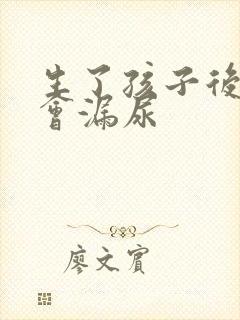 生了孩子後
會漏尿
廖文賓